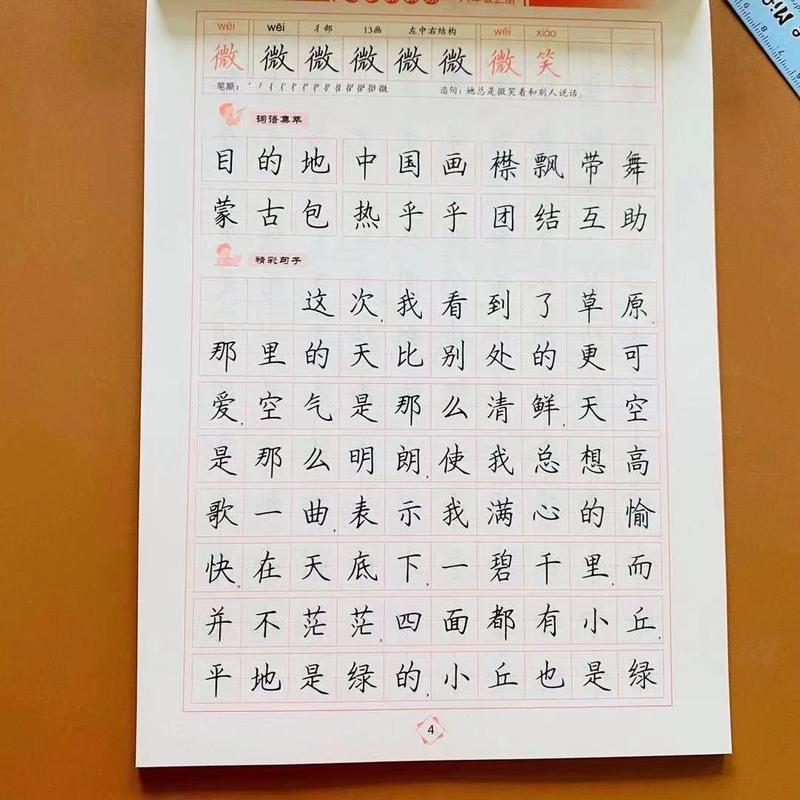 wēi wēi 彳部 13画 左中右结构 wēi xiào
微 微 微 微 微 微 微 笑
笔顺： 造句：她总是微笑着和别人说话。
词语集萃
目的地 中国画 襟飘带舞
蒙古包 热乎乎 团结互助
精彩句子
这次，我看到了草原。
那里的天比别处的更可
爱，空气是那么清鲜，天空
是那么明朗，使我总想高
歌一曲，表示我满心的愉
快。在天底下，一碧千里，而
并不茫茫。四面都有小丘，
平地是绿的，小丘也是绿
4